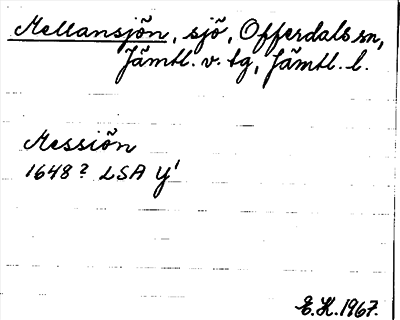 Mellansjön, sjö, Offerdals sn,
Jämtl. v. tg, Jämtl. l.
Messiön
1648? LSA Y'
E.H. 1967.